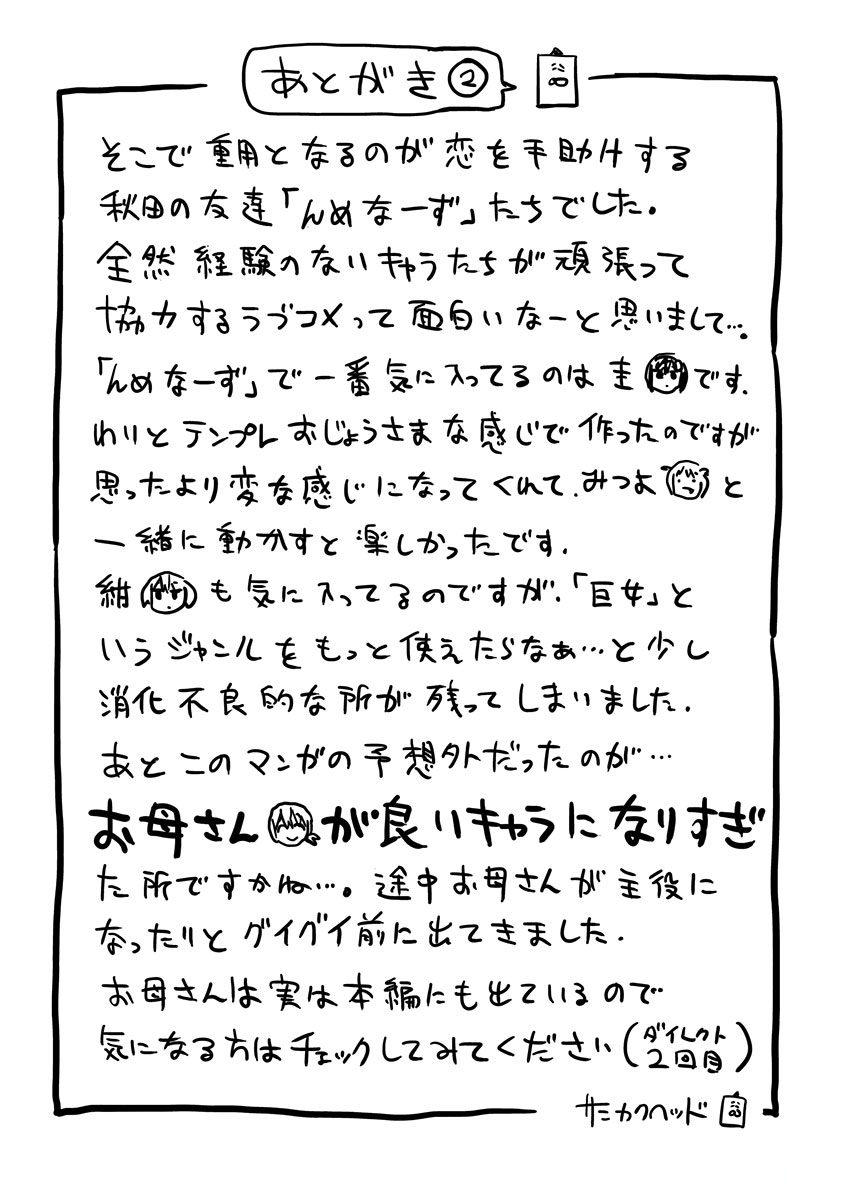 あとがき②
そこで重用となるのが恋を手助けする
秋田の友達「んめなーず」たちでした。
全然経験のないキャラたちが頑張って
協力するラブコメって面白いなーと思いまして…。
「んめなーず」で一番気に入ってるのは圭です。
わりとテンプレおじょうさまな感じで作ったのですが
思ったより変な感じになってくれて、みつよと
一緒に動かすと楽しかったです。
紺も気に入ってるのですが、「巨女」と
いうジャンルをもっと使えたらなぁ…と少し
消化不良的な所が残ってしまいました。
あとこのマンガの予想外だったのが…
お母さんが良いキャラになりすぎ
た所ですかね…。途中お母さんが主役に
なったりとグイグイ前に出てきました。
お母さんは実は本編にも出ているので
気になる方はチェックしてみてください(ダイレクト
2回目)
サミカクヘッド